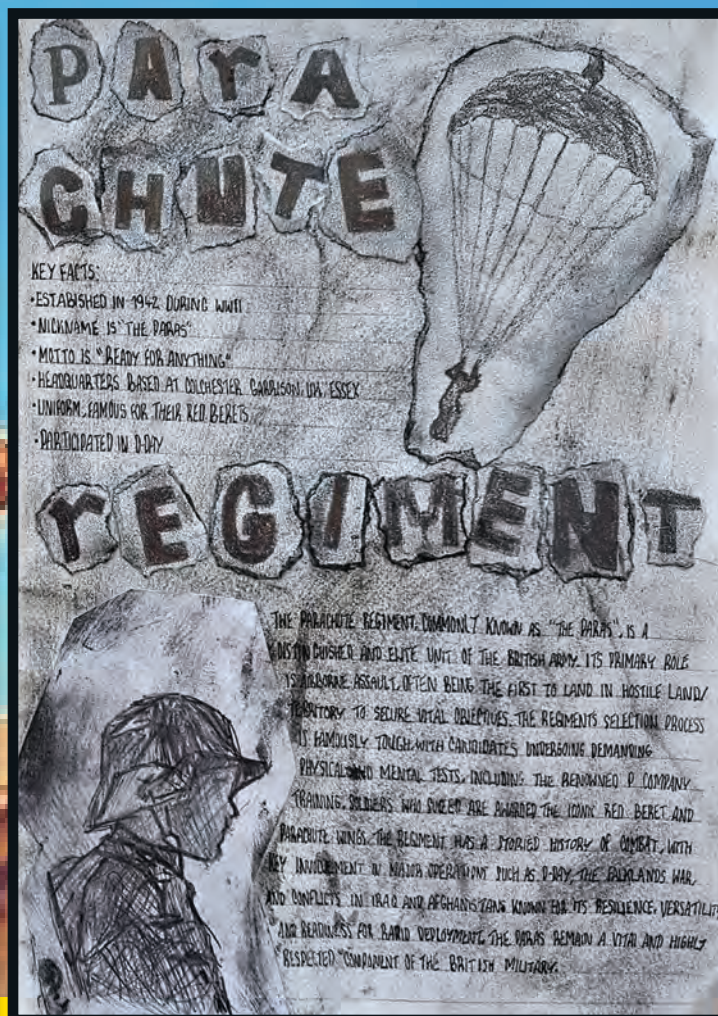 PArA
CHUTE
KEY FACTS:
•ESTABISHED IN 1942 DURING WWII
•NICKNAME IS "THE PARAS"
•MOTTO IS "READY FOR ANYTHING"
•HEADQUARTERS BASED AT COLCHESTER GARRISON, UK, ESSEX
•UNIFORM, FAMOUS FOR THEIR RED BERETS
•PARTICIPATED IN D-DAY
rEGIMENT
THE PARACHUTE REGIMENT, COMMONLY KNOWN AS "THE PARAS", IS A
DISTINGUISHED AND ELITE UNIT OF THE BRITISH ARMY. ITS PRIMARY ROLE
IS AIRBORNE ASSAULT, OFTEN BEING THE FIRST TO LAND IN HOSTILE LAND/
TERRITORY TO SECURE VITAL OBJECTIVES. THE REGIMENTS SELECTION PROCESS
IS FAMOUSLY TOUGH, WITH CANDIDATES UNDERGOING DEMANDING
PHYSICAL AND MENTAL TESTS, INCLUDING THE RENOWNED P COMPANY
TRAINING. SOLDIERS WHO ARE AWARDED THE ICONIC RED BERET AND
PARACHUTE WINGS. THE REGIMENT HAS A STORIED HISTORY OF COMBAT, WITH
KEY INVOLVEMENT IN MAJOR OPERATIONS SUCH AS D-DAY, THE FALKLANDS WAR,
AND CONFLICTS IN IRAQ AND AFGHANISTAN. KNOWN FOR ITS RESILIENCE, VERSATILITY
AND READINESS FOR RAPID DEPLOYMENT, THE PARAS REMAIN A VITAL AND HIGHLY
RESPECTED COMPONENT OF THE BRITISH MILITARY.